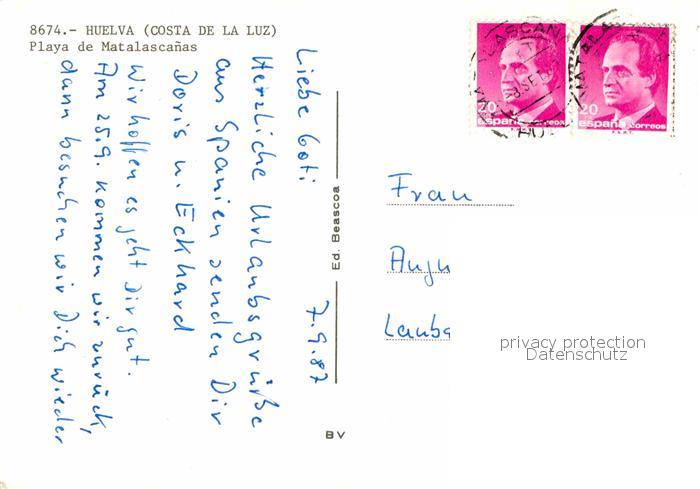 8674.- HUELVA (COSTA DE LA LUZ)
Playa de Matalascañas
7.9.87
Liebe Goti
Herzliche Urlaubsgrüße
aus Spanien senden Dir
Doris u. Eckhard
Wir hoffen es geht Dir gut.
Am 25.9. kommen wir zurück,
dann besuchen wir Dich wieder
Ed. Beascoa
BV
20
españa correos
F.N.M.T.
20
españa correos
F.N.M.T.
Frau
Laub
privacy protection
Datenschutz